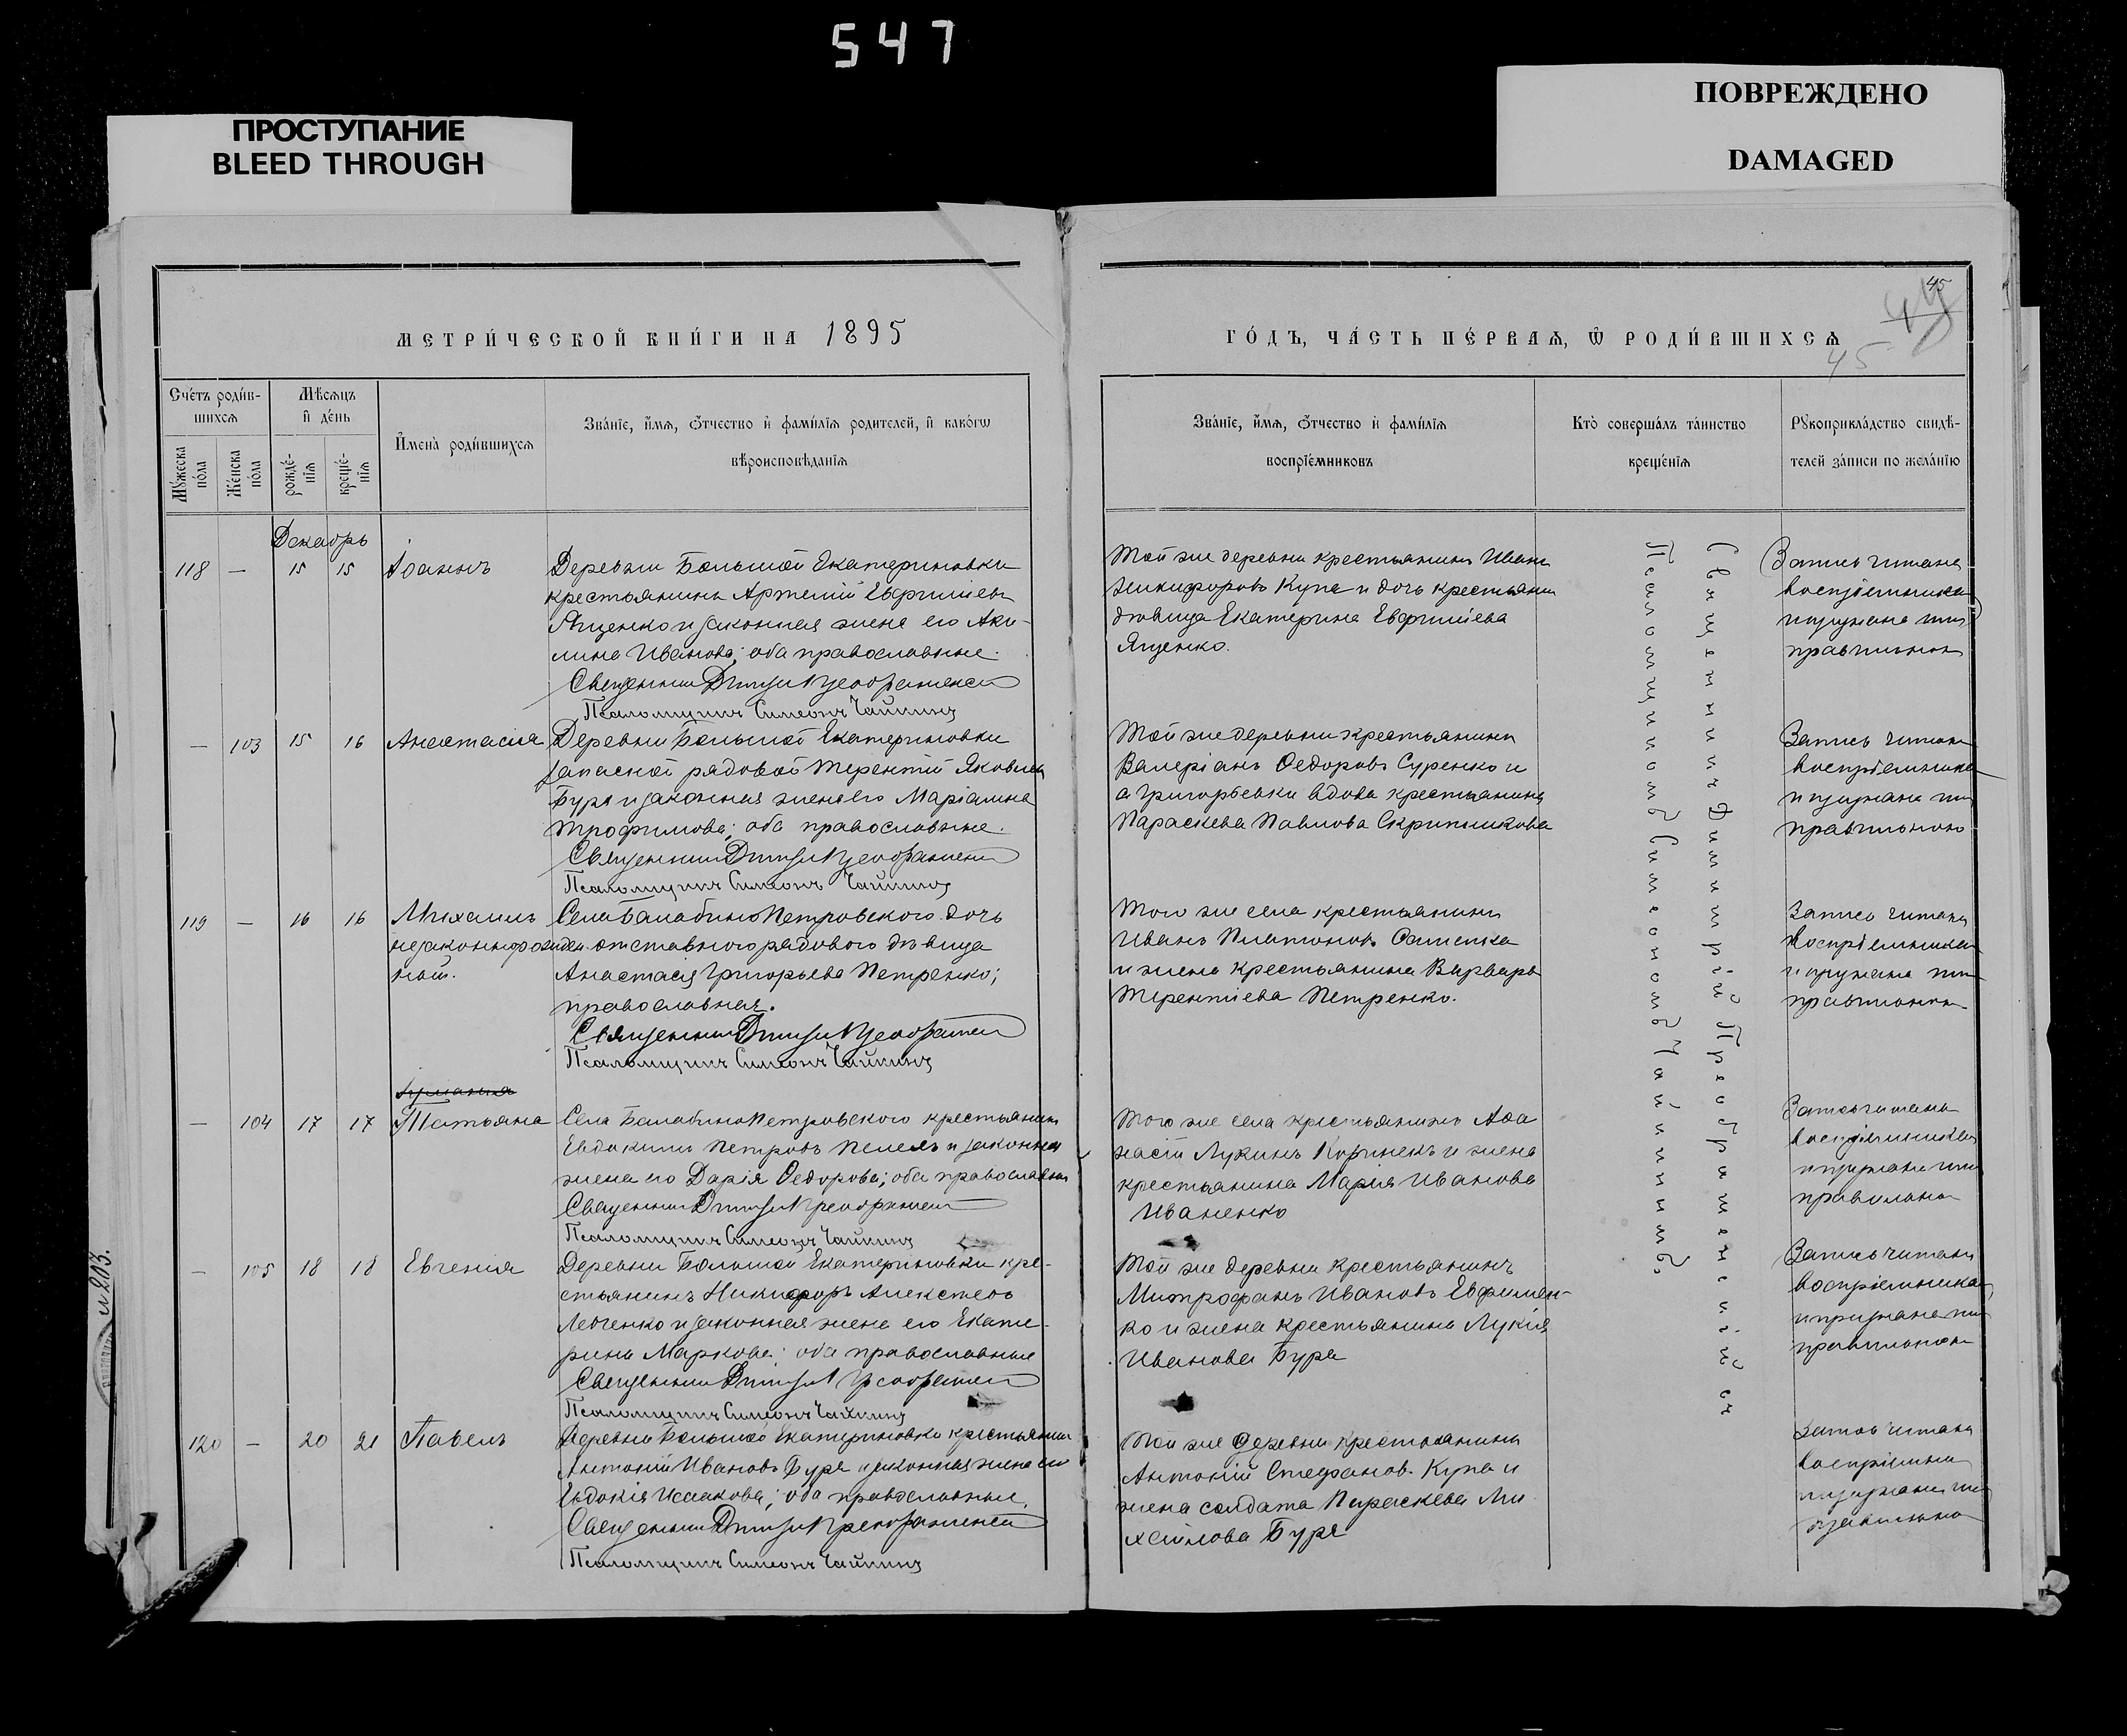 547
ПРОСТУПАНИЕ
BLEED THROUGH
ПОВРЕЖДЕНО
DAMAGED
45
45
МЕТРИ́ЧЕСКОЙ КНИ́ГИ НА 1895
ГО́ДЪ, ЧА́СТЬ ПЕ́РВАѦ, Ѿ РОДИ́ВШИХСѦ
Сче́тъ роди́в-
шихсѧ
Мꙋ́жеска по́ла
Же́нска по́ла
Мѣ́сѧцъ
и҆ де́нь
рожде́-нїѧ
креще́-нїѧ
И҆мена̀ роди́вшихсѧ
Зва́нїе, и҆́мѧ, ѻ҆́тчество и҆ фами́лїѧ родителей, и҆ како́гѡ
вѣроисповѣ́данїѧ
Зва́нїе, и҆́мѧ, ѻ҆́тчество и҆ фами́лїѧ
воспрїе́мниковъ
Кто̀ соверша́лъ та́инство
креще́нїѧ
Рꙋкоприкла́дство свидѣ́-
телей за́писи по жела́нїю
Декабрь
118 — 15 15 Іоаннъ
Деревни Большой Екатериновки
крестьянинъ Артемій Евфиміевъ
Яценко и законная жена его Аки-
лина Иванова; оба православные.
Священникъ Димитрій Преображенскій
Псаломщикъ Симеонъ Чайкинъ
Той же деревни крестьянинъ Иванъ
Никифоровъ Купа и дочь крестьянин
дѣвица Екатерина Евфиміева
Яценко.
Запись читана
воспріемникам
и признана ими
правильною
— 103 15 16 Анастасія
Деревни Большой Екатериновки
запасной рядовой Терентій Яковлевъ
Буря и законная жена его Маріамна
Трофимова; оба православные.
Священникъ Димитрій Преображенскій
Псаломщикъ Симеонъ Чайкинъ
Той же деревни крестьянинъ
Валеріанъ Ѳедоровъ Суренко и
д Григорьевки вдова крестьянина
Параскева Павлова Скрипникова
Запись читана
воспріемникам
и признана ими
правильною
119 — 16 16 Михаилъ
незаконнорожден
ный.
Села Балабино Петровского дочь
отставного рядового дѣвица
Анастасія Григорьева Петренко;
православная.
Священникъ Димитрій Преображенскій
Псаломщикъ Симеонъ Чайкинъ
Того же села крестьянинъ
Иванъ Платоновъ
и жена крестьянина Варвара
Терентіева Петренко.
Запись читана
воспріемникам
и признана ими
правильною
— 104 17 17 Татьяна
Села Балабино Петровского крестьянинъ
Евдокимъ Петровъ и законная
жена его Дарія Ѳедорова; оба православные
Священникъ Димитрій Преображенскій
Псаломщикъ Симеонъ Чайкинъ
Того же села крестьянинъ Аѳа
насій Лукинъ Коринекъ и жена
крестьянина Марія Иванова
Иваненко
Запись читана
воспріемникам
и признана ими
правильною
— 105 18 18 Евгенія
Деревни Большой Екатериновки кре-
стьянинъ Никифоръ Алексѣевъ
Левченко и законная жена его Екате-
рина Маркова; оба православные
Священникъ Димитрій Преображенскій
Псаломщикъ Симеонъ Чайкинъ
Той же деревни крестьянинъ
Митрофанъ Ивановъ Евфимен-
ко и жена крестьянина Лукія
Иванова Буря
Запись читана
воспріемникам
и признана ими
правильною
120 — 20 21 Павелъ
Деревни Большой Екатериновки крестьянинъ
Антоній Ивановъ Буря и законная жена его
Евдокія Исаакова; оба православные.
Священникъ Димитрій Преображенскій
Псаломщикъ Симеонъ Чайкинъ
Той же деревни крестьянинъ
Антоній Стефановъ Купа и
жена солдата Параскева Ми
хайлова Буря
Запись читана
воспріемникам
и признана ими
правильною
Священникъ Димитрій Преображенскій съ
Псаломщикомъ Симеономъ Чайкинымъ.
и 203.